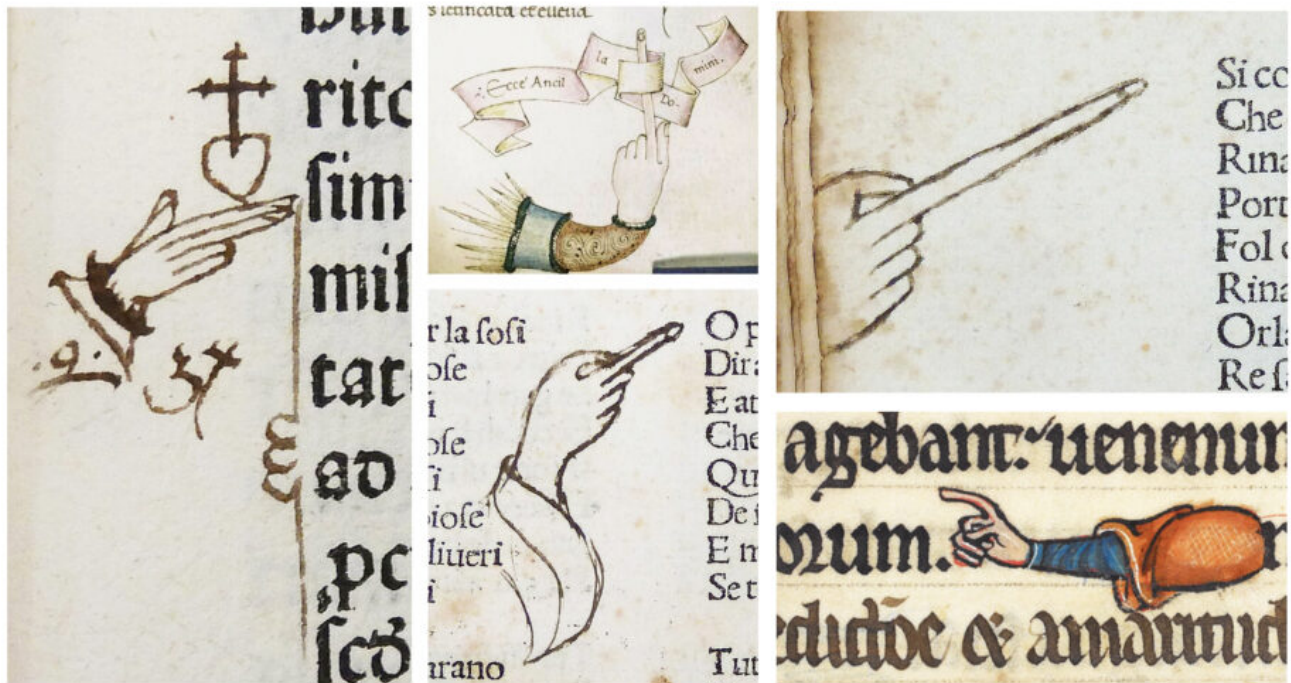 ritc
ſim
miſ
tat
ad
pc
ſcō
Ecce Ancil
la
Do-
mini.
r la ſoſi
oſe
i
oſe
ſi
oioſe
liueri
i
arano
O p
Dira
E at
Che
Qu
De i
E m
Se t
Tut
Sicc
Che
Rina
Port
Fol
Rina
Orla
Re ſ
agebant: uenenum
orum.
& amaritud